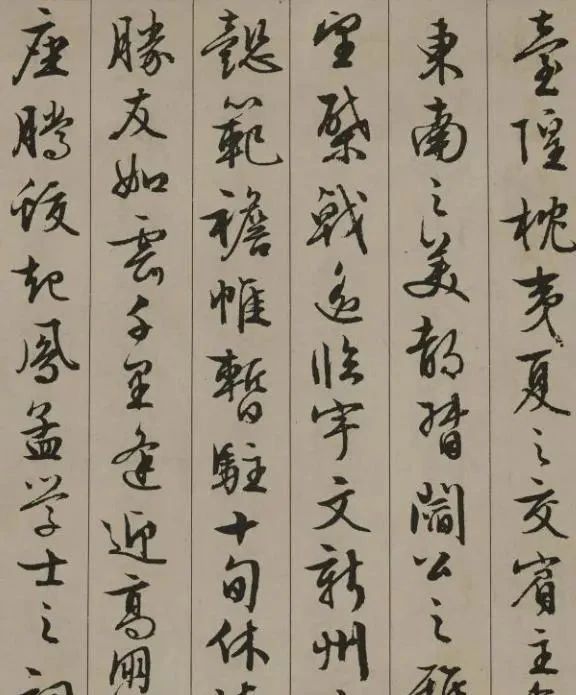 臺隍枕夷夏之交賓主
東南之美都督閻公之雅
望棨戟遙臨宇文新州
懿範襜帷暫駐十旬休
勝友如雲千里逢迎高朋
座騰蛟起鳳孟學士之詞